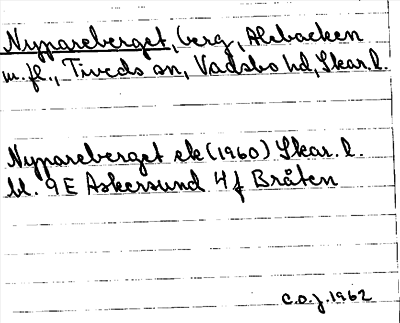 Nypareberget, berg, Alsbacken
m.fl., Tiveds sn, Vadsbo hd, Skar.l.
Nypareberget ek (1960) Skar. l.
bl. 9 E Askersund 4 f Bråten
C.O.J. 1962